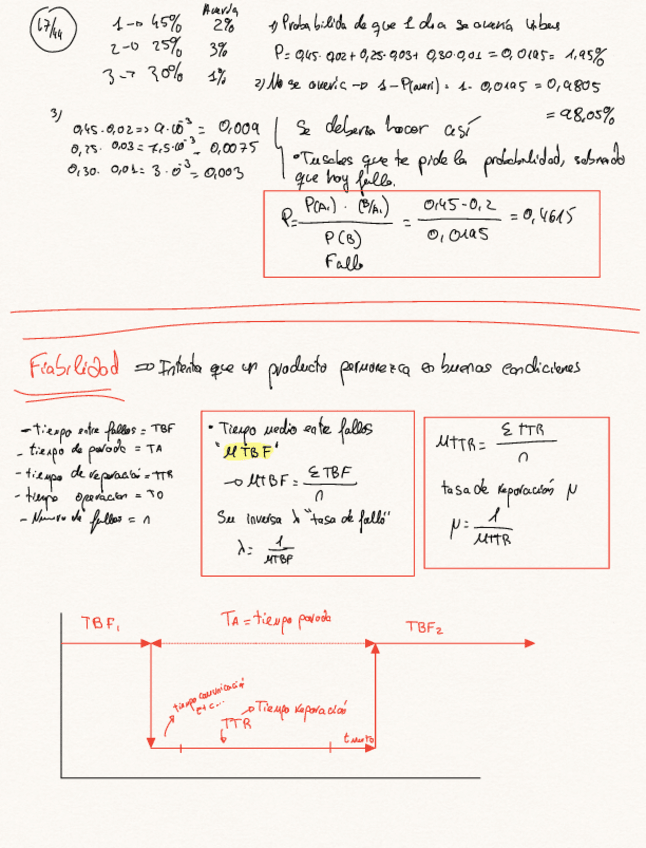 67/44
Avería
1 → 45% 2%
2 → 25% 3%
3 → 30% 1%
1) Probabilida de que 1 dia se averia
P = 0,45 · 0,02 + 0,25 · 0,03 + 0,30 · 0,01 = 0,0195 = 1,95%
2) No se averic → 1 - P(averi) = 1 - 0,0195 = 0,9805
= 98,05%
3)
0,45 · 0,02 => 9·10⁻³ = 0,009
0,25 · 0,03 = 7,5·10⁻³ = 0,0075
0,30 · 0,01 = 3·10⁻³ = 0,003
Se deberia hacer así
• Tu sabes que te pide la probabilidad, sabiendo
que hay fallo.
P = P(A₁) · (B/A₁) / P(B) = 0,45 - 0,2 / 0,0195 = 0,4615
Fallo
Fiabilidad => Intenta que un producto permanezca en buenas condiciones
- tiempo entre fallos = TBF
- tiempo de parada = TA
- tiempo de reparación = TTR
- tiempo operacion = TO
- Numero de fallos = n
• Tiempo medio entre fallos
"MTBF"
→ MTBF = Σ TBF / n
Su inversa λ "tasa de fallo"
λ = 1 / MTBF
MTTR = Σ TTR / n
tasa de reparación μ
μ = 1 / MTTR
TBF₁ TA = tiempo parada TBF₂
tiempo comunicació
etc...
→ Tiempo reparación
TTR